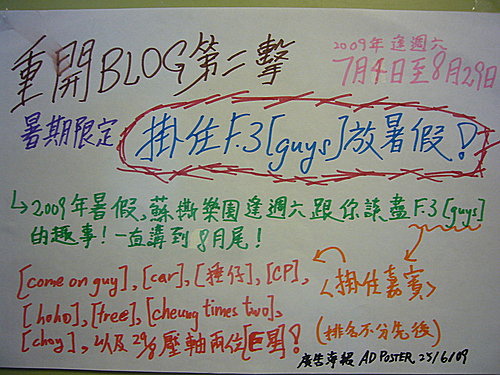 重開BLOG第二擊
2009年逢週六
7月4日至8月29日
暑期限定
掛住F.3[guys]放暑假!
↳2009年暑假,蘇撕樂園逢週六跟你談盡F.3[guys]
的趣事!一直講到8月尾!
[come on guy],[car],[捶仔],[CP],
[hoho],[tree],[cheung times two],
[choy],以及29/8壓軸兩位[巨星]!
<掛住嘉賓>
(排名不分先後)
廣告海報 AD POSTER 25/6/09